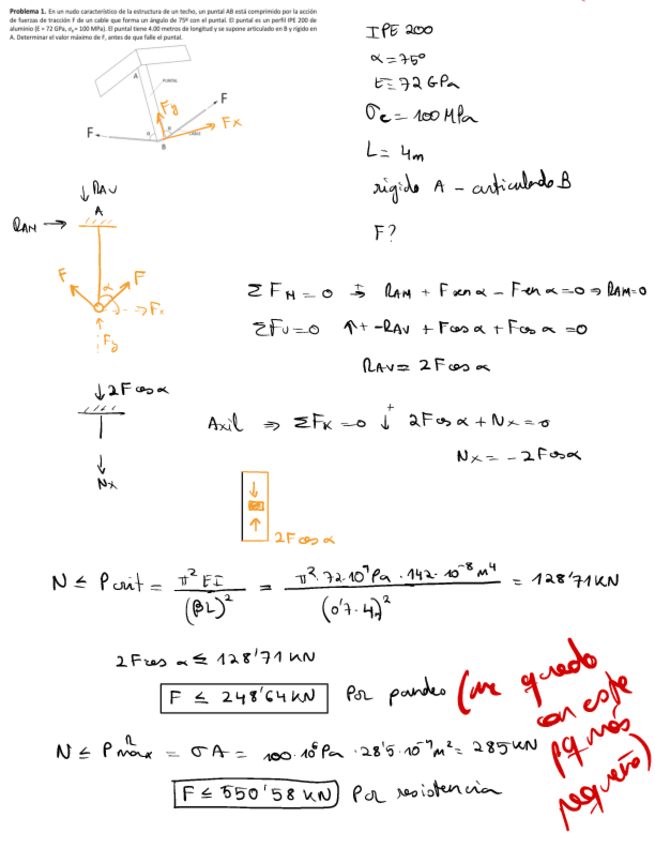 Problema 1. En un nudo característico de la estructura de un techo, un puntal AB está comprimido por la acción
de fuerzas de tracción F de un cable que forma un ángulo de 75º con el puntal. El puntal es un perfil IPE 200 de
aluminio (E = 72 GPa, σe= 100 MPa). El puntal tiene 4.00 metros de longitud y se supone articulado en B y rígido en
A. Determinar el valor máximo de F, antes de que falle el puntal.
A
PUNTAL
Fy
F
Fx
F
α
α
CABLE
B
IPE 200
α=75º
E=72 GPa
σe=100 MPa
L= 4m
rígido A - articulado B
F?
↓RAV
A
RAH →
F
F
α
→Fx
↑
Fy
ΣFH=0 →+ RAH + F sen α - F sen α=0 ⇒ RAH=0
ΣFV=0 ↑+ -RAV + F cos α + F cos α =0
RAV= 2F cos α
↓2F cos α
↓
Nx
Axil ⇒ ΣFx=0 ↓+ 2F cos α + Nx=0
Nx= -2F cos α
↓
↑
2F cos α
N ≤ Pcrit = π² EI / (βL)² = π²·72·10⁹ Pa · 142·10⁻⁸ m⁴ / (0'7·4)² = 128'71 KN
2F cos α ≤ 128'71 KN
F ≤ 248'64 KN Por pandeo (me quedo
con este
pq más
pequeño)
N ≤ PRmáx = σ A = 100·10⁶ Pa · 28'5·10⁻⁴ m² = 285 KN
F ≤ 550'58 KN Por resistencia